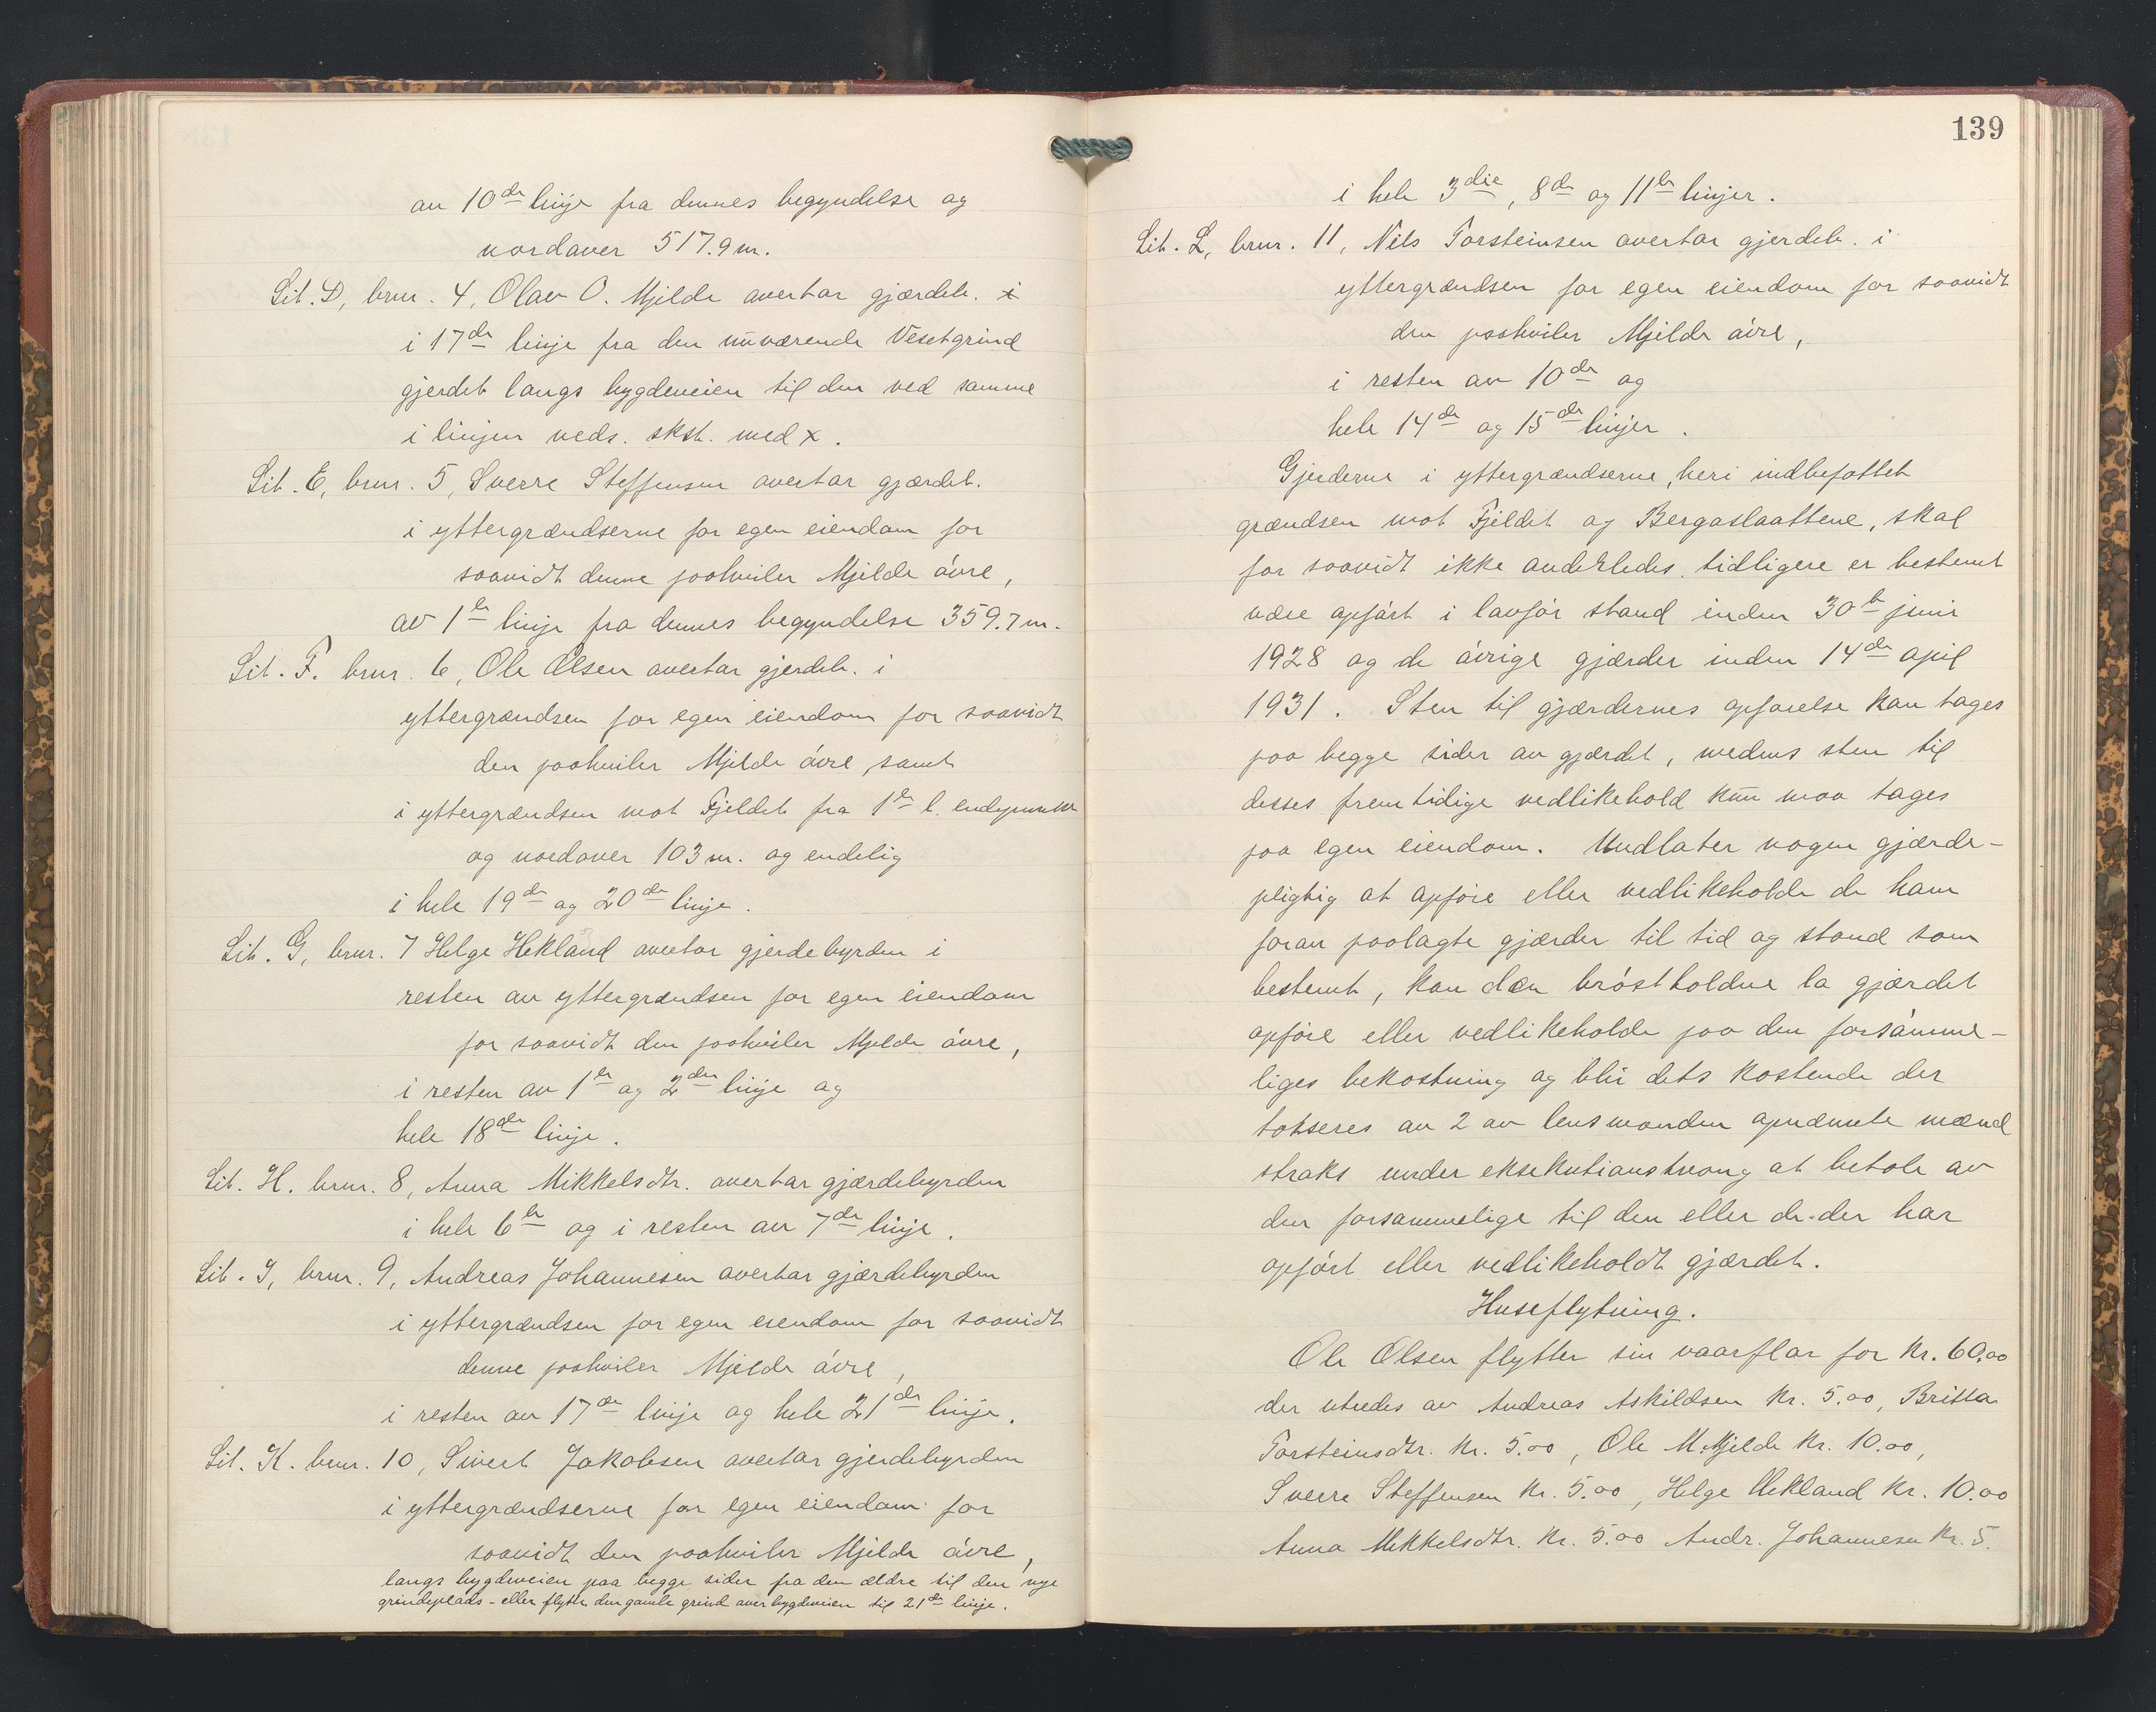 av 10de linje fra dennes begyndelse og
nordover 517.9 m.
Lit. D, brnr. 4, Olav O. Mjelde overtar gjærdeb. i
i 17de linje fra den nuværende Vesetgrind
gjerdet langs bygdeveien til den ved samme
i linjen neds. skst. med x.
Lit. E, brnr. 5, Sverre Steffensen overtar gjærdeb.
i yttergrændserne for egen eiendom for
saavidt denne paahviler Mjelde øvre,
av 1te linje fra dennes begyndelse 359.7 m.
Lit. F. brnr. 6, Ole Olsen overtar gjerdeb. i
yttergrændsen for egen eiendom for saavidt
den paahviler Mjelde øvre, samt
i yttergrændsen mot Fjeldet fra 1te l. endepunkt
og nordover 103 m. og endelig
i hele 19de og 20de linje.
Lit. G, brnr. 7 Helge Hekland overtar gjerdebyrden i
resten av yttergrændsen for egen eiendom
for saavidt den paahviler Mjelde øvre,
i resten av 1te og 2den linje og
hele 18de linje.
Lit. H. brnr. 8, Anna Mikkelsdtr. overtar gjærdebyrden
i hele 6te og i resten av 7de linje.
Lit. I, brnr. 9, Andreas Johannesen overtar gjærdebyrden
i yttergrændsen for egen eiendom for saavidt
denne paahviler Mjelde øvre,
i resten av 17de linje og hele 21de linje.
Lit. K. brnr. 10, Sivert Jakobsen overtar gjerdebyrden
i yttergrændserne for egen eiendom for
saavidt den paahviler Mjelde øvre,
langs bygdeveien paa begge sider fra den ældre til den nye
grindeplads - eller flytte den gamle grind over bygdeveien til 21de linje.
139
i hele 3die, 8de og 11te linjer.
Lit. L, brnr. 11, Nils Torsteinsen overtar gjerdeb. i
yttergrændsen for egen eiendom for saavidt
den paahviler Mjelde øvre,
i resten av 10de og
hele 14de og 15de linjer.
Gjerderne i yttergrændserne, heri indbefattet
grændsen mot Fjeldet og Bergaslaattene, skal
for saavidt ikke anderledes tidligere er bestemt
være opført i lovfør stand inden 30te juni
1928 og de øvrige gjærder inden 14de april
1931. Sten til gjærdernes opførelse kan tages
paa begge sider av gjærdet, medens sten til
desses fremtidige vedlikehold kun maa tages
paa egen eiendom. Undlater nogen gjærde-
pligtig at opføre eller vedlikeholde de ham
foran paalagte gjærder til tid og stand som
bestemt, kan den brøstholdne la gjærdet
opføre eller vedlikeholde paa den forsømme-
liges bekostning og blir dets kostende der
takseres av 2 av lensmanden opnævnte mænd
straks under eksekutionstvang at betale av
den forsømmelige til den eller de der har
opført eller vedlikeholdt gjærdet.
Huseflytning.
Ole Olsen flytter sin vaarflor for kr. 60.00
der utredes av Andreas Askildsen kr. 5.00, Britta
Torsteinsdtr. kr. 5.00, Ole M. Mjelde kr. 10.00,
Sverre Steffensen kr. 5.00, Helge Hekland kr. 10.00
Anna Mikkelsdtr. kr. 5.00 Andr. Johannesen kr. 5.